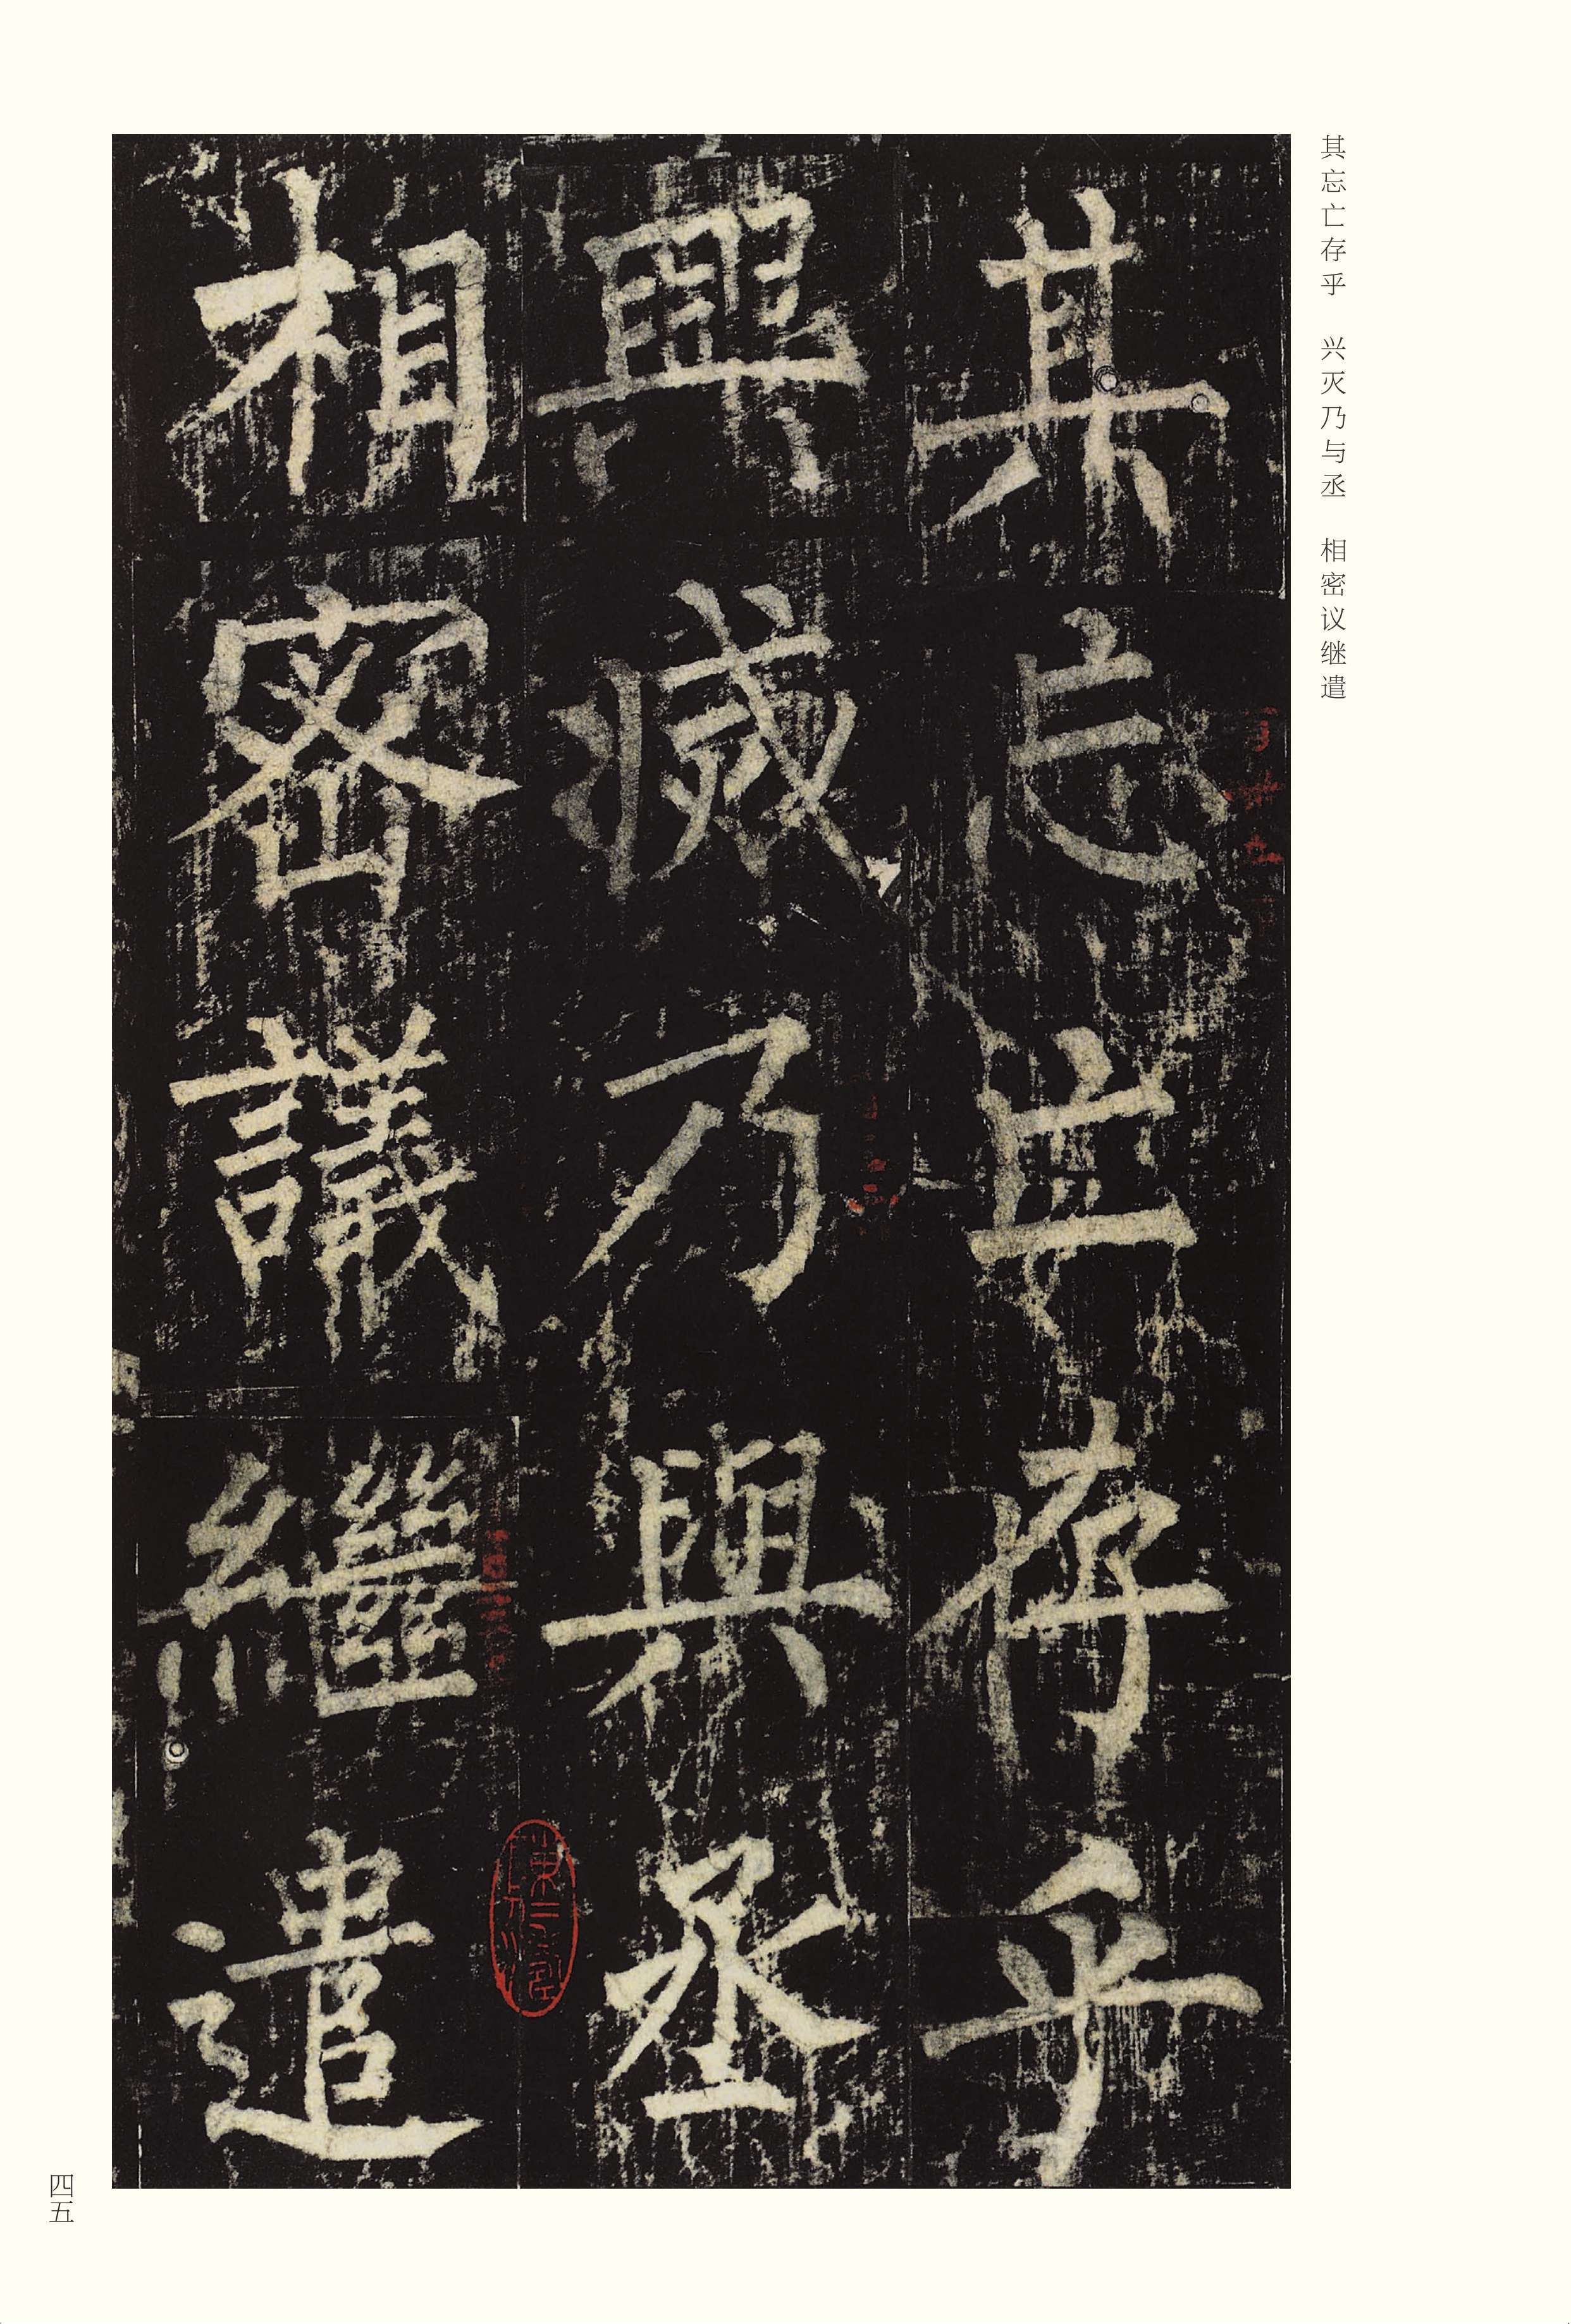 其忘亡存乎
興滅乃與丞
相密議繼遣
其忘亡存乎　兴灭乃与丞　相密议继遣
四五